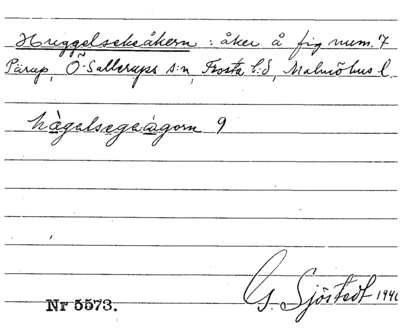 Huggelsekeåkern : åker å fig num. 7
Pärup, Ö. Sallerups s:n, Frosta h:d, Malmöhus l.
hàgelsegeàgorn 9
G. Sjöstedt 1946
Nr 5573.